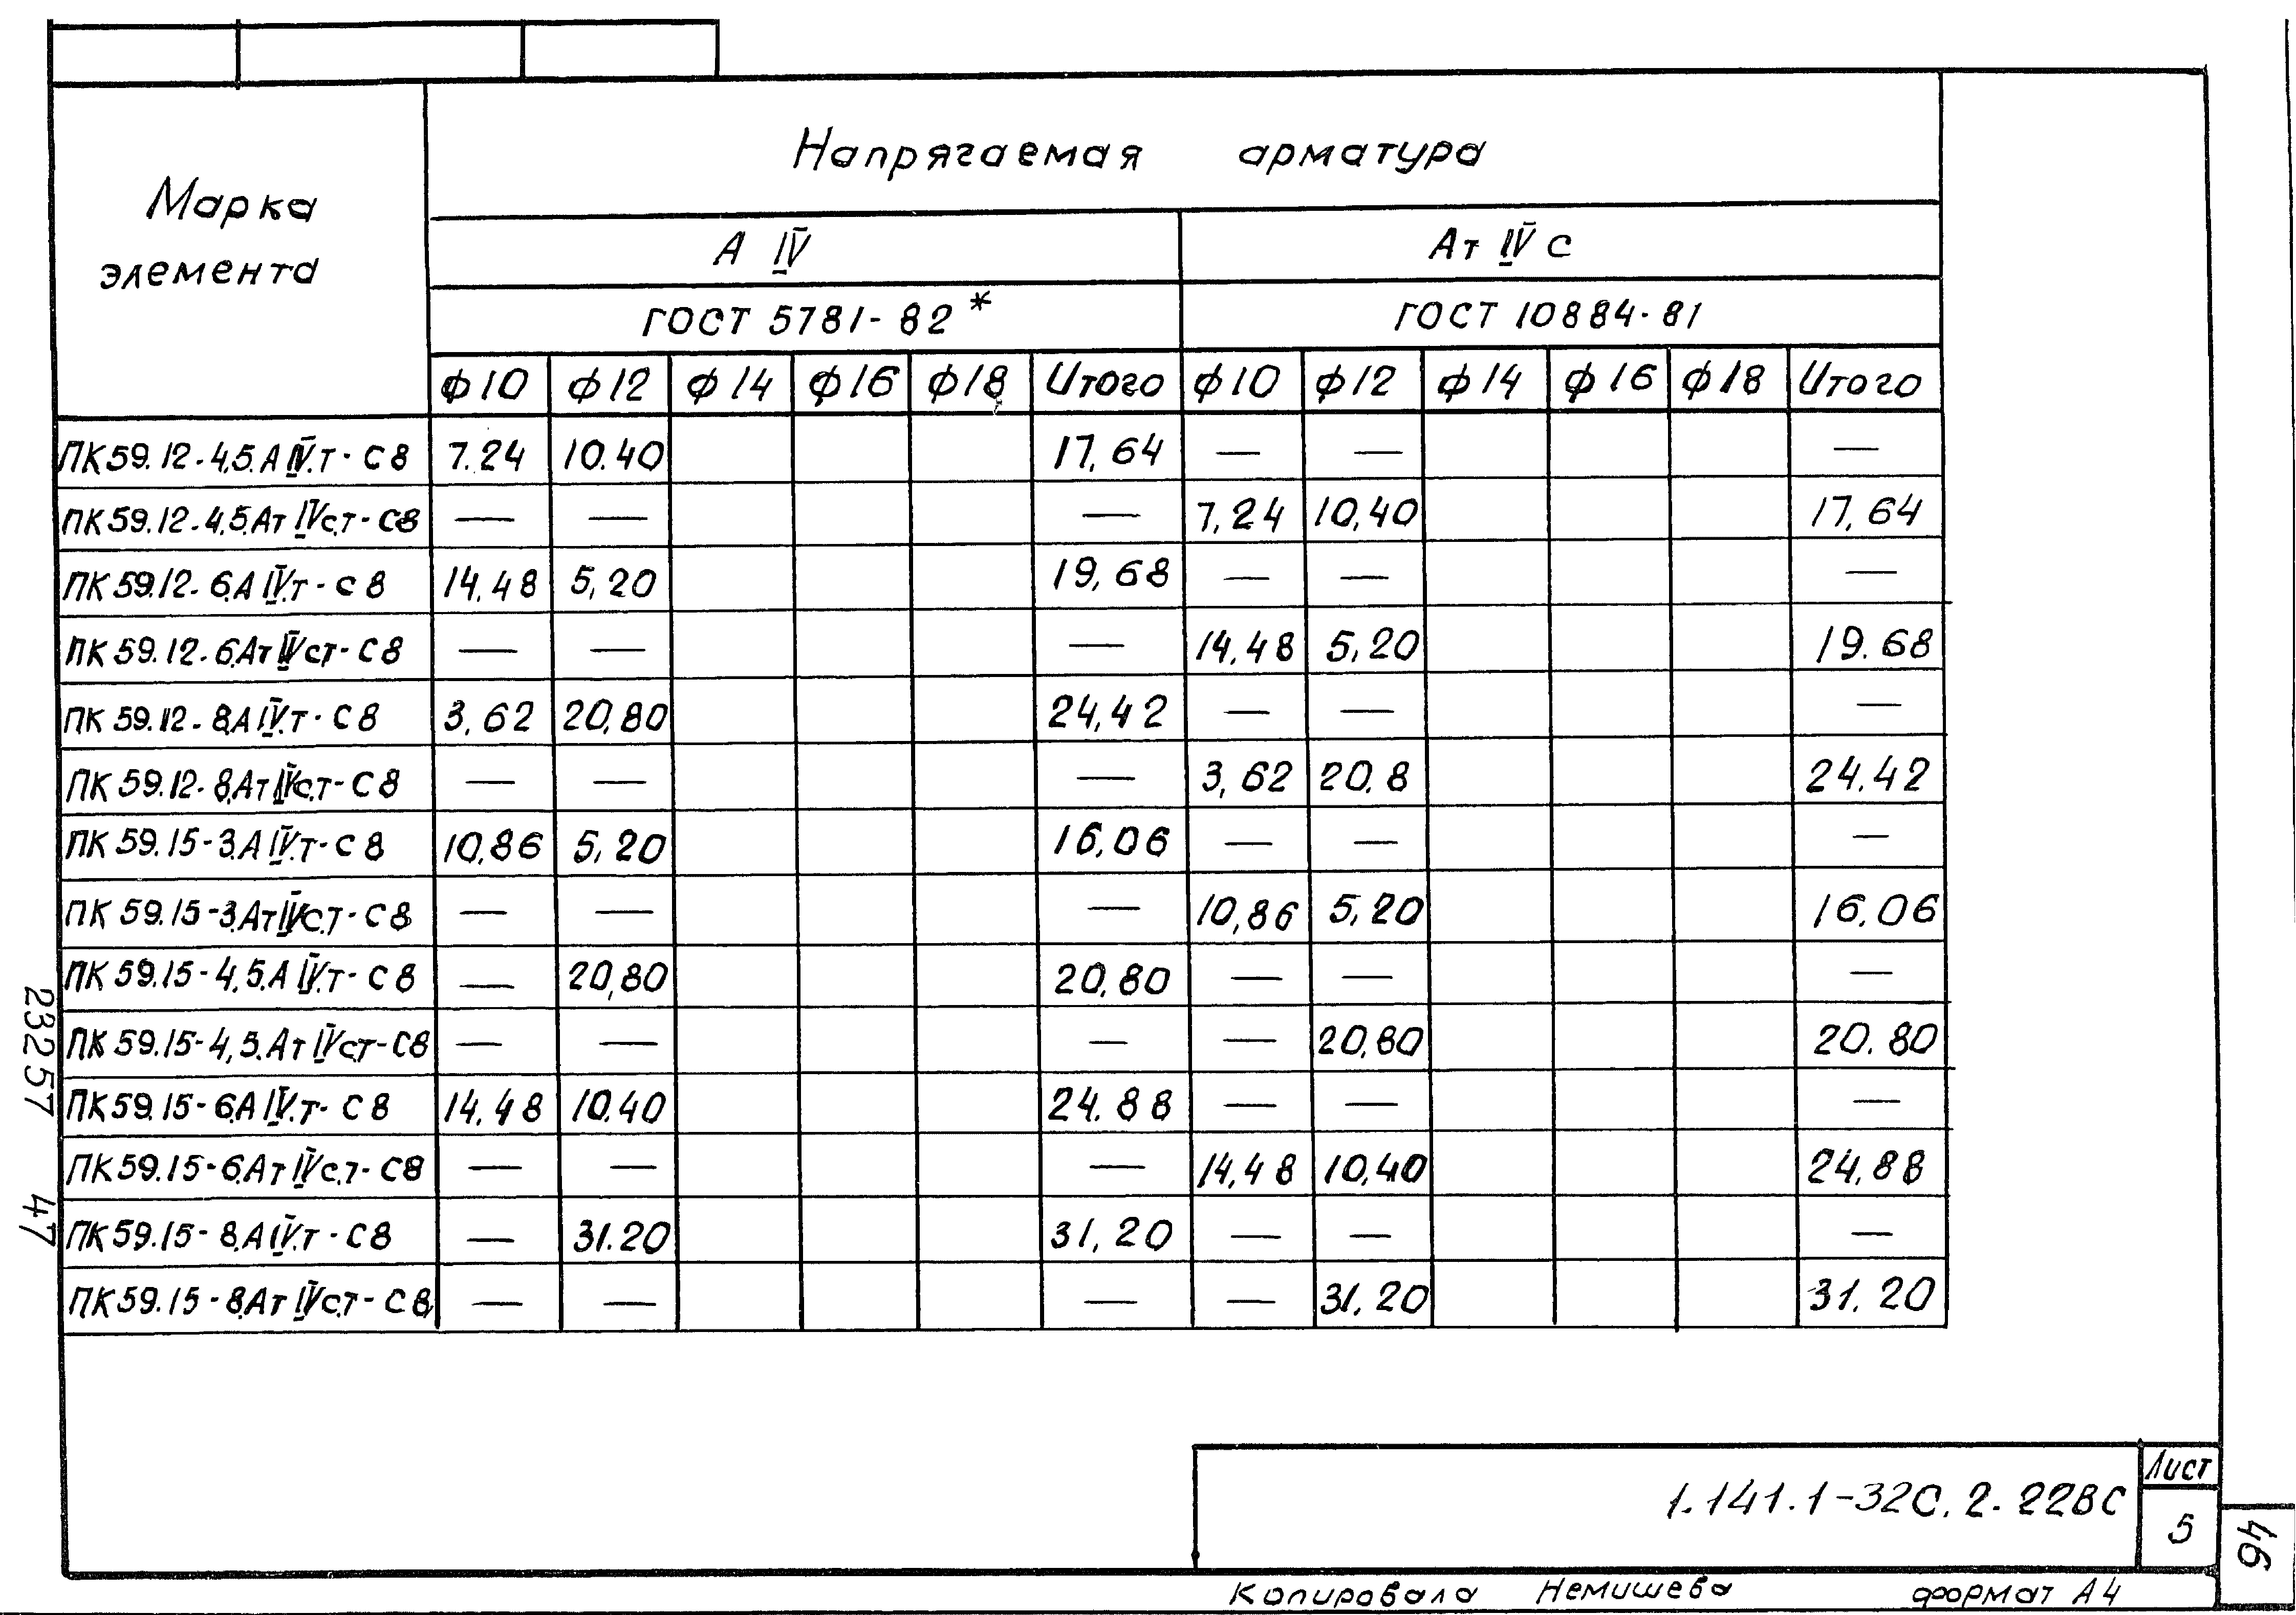 Марка элемента
Напрягаемая арматура
А IV
Ат IV с
ГОСТ 5781-82*
ГОСТ 10884-81
ф10 ф12 ф14 ф16 ф18 Итого ф10 ф12 ф14 ф16 ф18 Итого
ПК59.12-4,5.АIV.т-С8 7.24 10.40 17,64 — — —
ПК59.12-4,5.АтIVс.т-С8 — — — 7,24 10,40 17,64
ПК59.12-6.АIV.т-С8 14,48 5,20 19,68 — — —
ПК59.12-6.АтIVст-С8 — — — 14,48 5,20 19.68
ПК59.12-8.АIV.т-С8 3,62 20,80 24,42 — — —
ПК59.12-8.АтIVс.т-С8 — — — 3,62 20,8 24.42
ПК59.15-3.АIV.т-С8 10,86 5,20 16,06 — — —
ПК59.15-3.АтIVс.т-С8 — — — 10,86 5,20 16,06
ПК59.15-4,5.АIV.т-С8 — 20,80 20,80 — — —
ПК59.15-4,5.АтIVст-С8 — — — — 20,80 20.80
ПК59.15-6.АIV.т-С8 14,48 10.40 24.88 — — —
ПК59.15-6.АтIVс.т-С8 — — — 14,48 10,40 24,88
ПК59.15-8.АIV.т-С8 — 31.20 31,20 — — —
ПК59.15-8.АтIVс.т-С8 — — — — 31,20 31.20
23257 47
1.141.1-32С.2-22ВС
Лист
5
46
Копировала Немишева формат А4